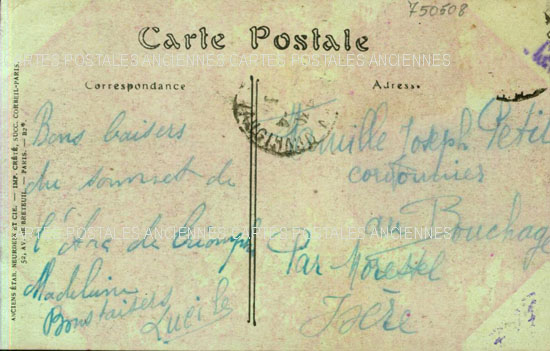 750508
CARTES POSTALES ANCIENNES
Carte Postale
Correspondance
Adresse
Bons baisers
du sommet de
l'Arc de Triomphe
Madeleine
Bons baisers
Lucile
Famille Joseph Petit
cordonnier
au Bouchage
Par Morestel
Isère
ANCIENS ÉTAB. NEURDEIN ET CIE. — IMP. CRÉTÉ, SUCC. CORBEIL-PARIS.
52, AV. DE BRETEUIL. — PARIS.